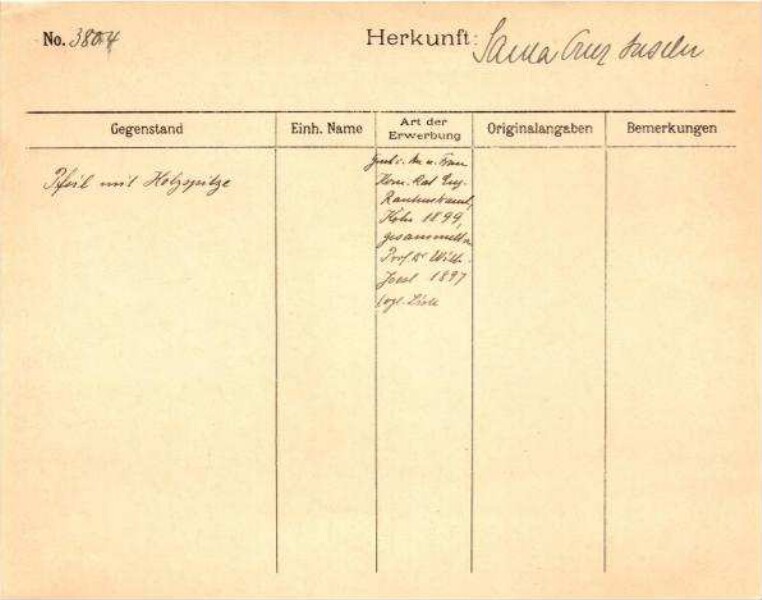 No. 3804
Herkunft: Santa Cruz Inseln
Gegenstand
Einh. Name
Art der
Erwerbung
Originalangaben
Bemerkungen
Pfeil mit Holzspitze
u. Frau
Kom. Rat Eug.
Rautenstrauch,
Köln 1899,
gesammelt v.
Prof. Dr Wilh.
Joest 1897
(vgl. Liste